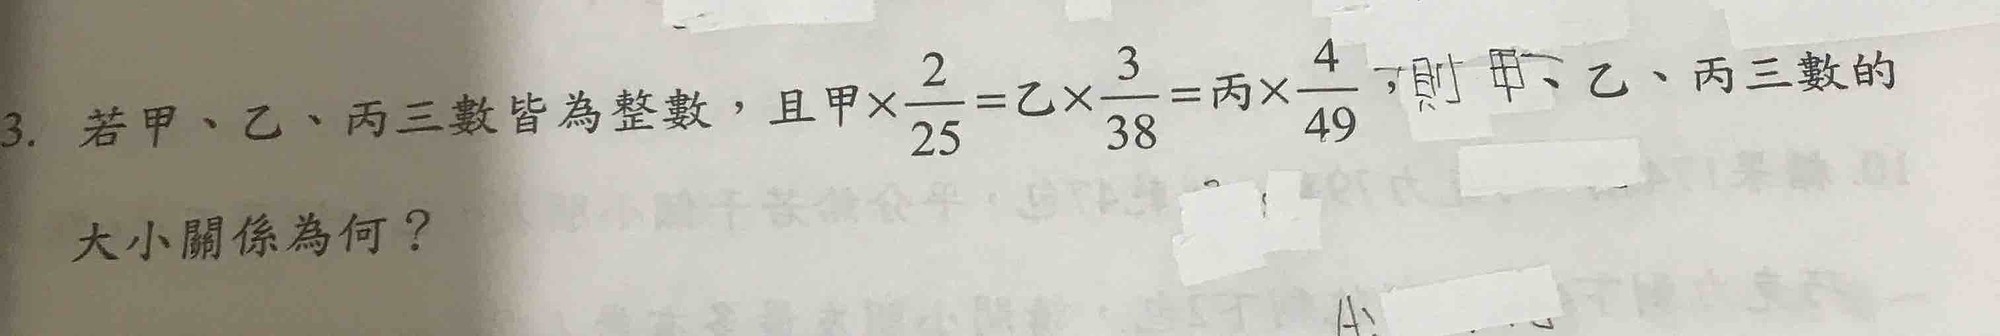 3. 若甲、乙、丙三數皆為整數，且甲×2/25=乙×3/38=丙×4/49，則甲、乙、丙三數的
大小關係為何？
A: